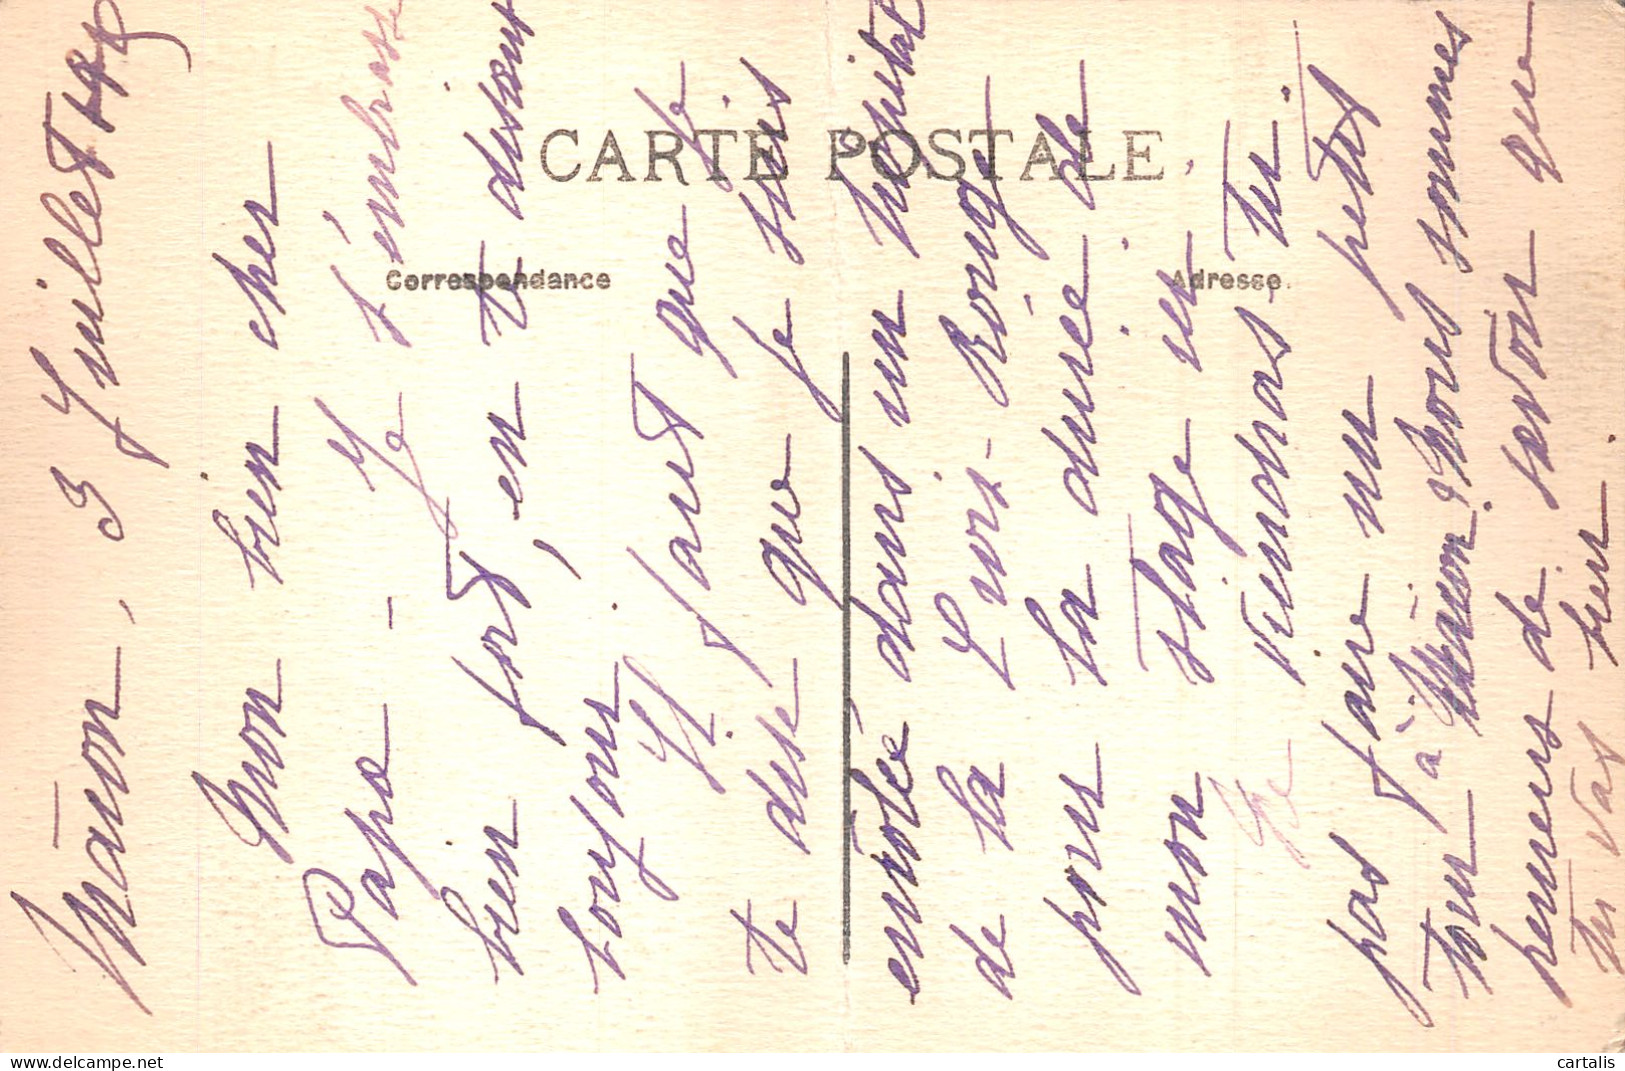 CARTE POSTALE
Correspondance
Adresse
Mâcon, 3 Juillet
Mon bien cher
Papa - Je t'embrasse
bien fort, en te disant
toujours
Il faut que je
te dise que je suis
enrolé dans un hopital
de la Croix-Rouge
pour la durée de
mon stage ici
Ne viendras-tu
pas faire un petit
tour à Mâcon. Nous sommes
heureuses de savoir que
tu vas bien
cartalis